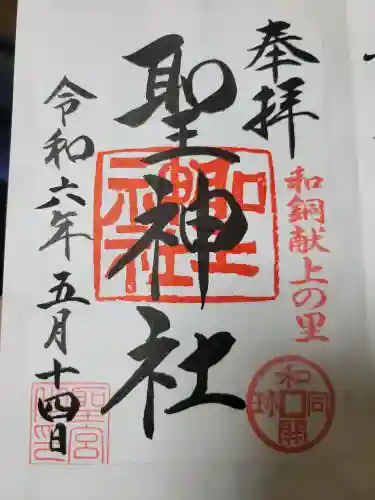 奉拝
和銅献上の里
和同開珎
聖神社
聖神社
令和六年五月十四日
聖宮